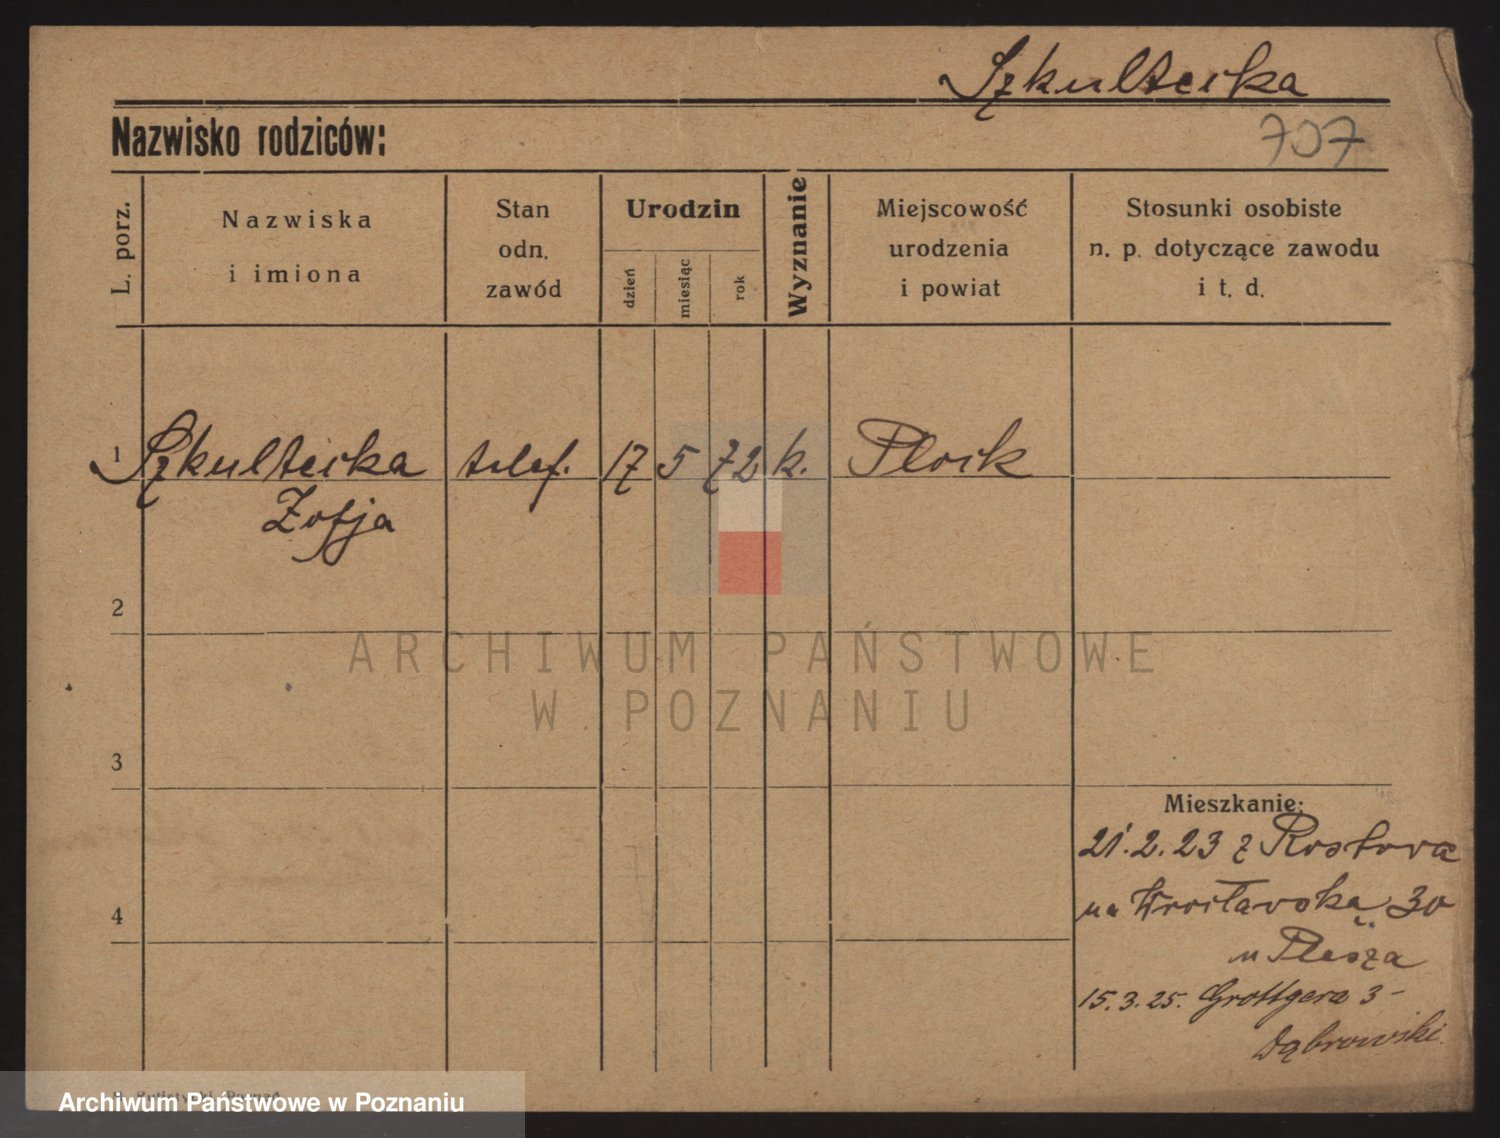 Szkultecka
Nazwisko rodziców:
707
L. porz.
Nazwiska
i imiona
Stan
odn.
zawód
Urodzin
dzień
miesiąc
rok
Wyznanie
Miejscowość
urodzenia
i powiat
Stosunki osobiste
n. p. dotyczące zawodu
i t. d.
1 Szkultecka telef. 17 5 72 k. Plock
Zofja
2
ARCHIWUM PAŃSTWOWE
W POZNANIU
3
Mieszkanie:
21.2.23 z Rostova
4
na Wrocławską 30
u Plesza
15.3.25. Grottgera 3-
Dąbrowski
Archiwum Państwowe w Poznaniu